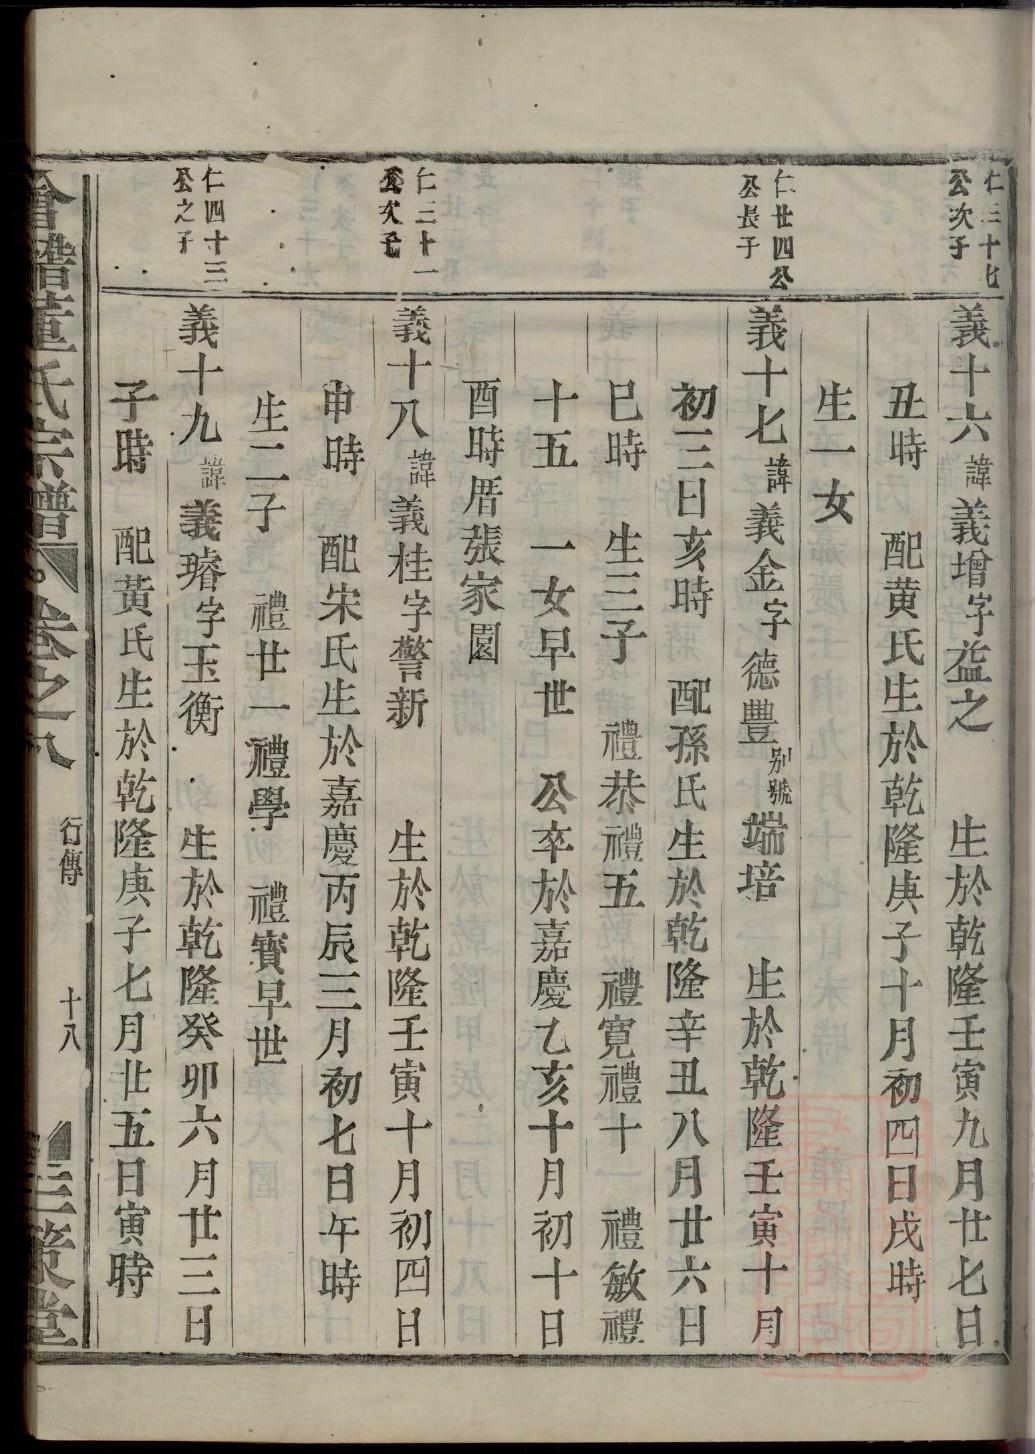 仁三十七
公次子
義十六諱義增字益之　生於乾隆壬寅九月廿七日
丑時　配黄氏生於乾隆庚子十月初四日戌時
生一女
仁廿四公
公長子
義十七諱義金字德豐别號端培　生於乾隆壬寅十月
初三日亥時　配孫氏生於乾隆辛丑八月廿六日
巳時　生三子　禮恭禮五　禮寬禮十一　禮敏禮
十五　一女早世　公卒於嘉慶乙亥十月初十日
酉時厝張家園
仁三十一
公次子
義十八諱義桂字警新　生於乾隆壬寅十月初四日
申時　配宋氏生於嘉慶丙辰三月初七日午時
生二子　禮廿一禮學　禮賓早世
仁四十三
公之子
義十九諱義璿字玉衡　生於乾隆癸卯六月廿三日
子時　配黃氏生於乾隆庚子七月廿五日寅時
會稽董氏宗譜　卷之八　行傳　十八　三策堂